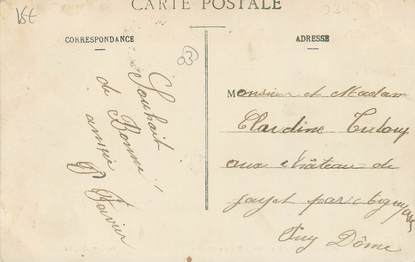 CARTE POSTALE
CORRESPONDANCE
ADRESSE
Vst
63
Souhait
de Bonne
année
Favier
Monsieur et Madam
Claudine
aux château de
par
Puy Dôme